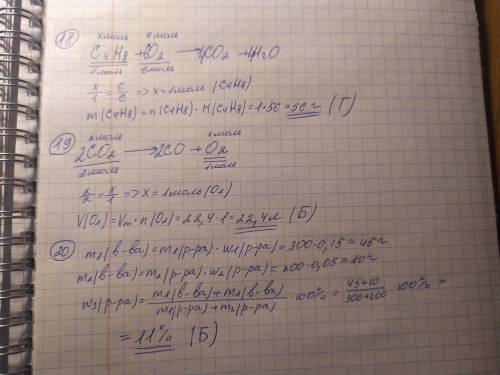 18) x моль 6 моль
C4H8 + 6O2 → 4CO2 + 4H2O
1 моль 6 моль
x/1 = 6/6 => x = 1 моль (C4H8)
m(C4H8) = n(C4H8) · M(C4H8) = 1 · 56 = 56 г (Г)
19) 2 моль x моль
2CO2 → 2CO + O2
2 моль 1 моль
2/2 = x/1 => x = 1 моль (O2)
V(O2) = Vm · n(O2) = 22,4 · 1 = 22,4 л (Б)
20) m1(в-ва) = m1(р-ра) · w1(р-ра) = 300 · 0,15 = 45 г
m2(в-ва) = m2(р-ра) · w2(р-ра) = 200 · 0,05 = 10 г
w3(р-ра) = m1(в-ва) + m2(в-ва) / m1(р-ра) + m2(р-ра) · 100% = 45+10 / 300+200 · 100% =
= 11% (Б)